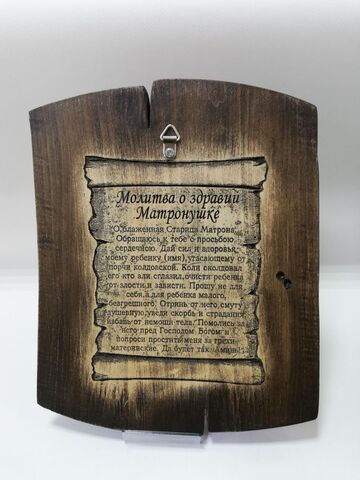 Молитва о здравии
Матронушке
"О,блаженная Старица Матрона.
Обращаюсь к тебе о просьбою
сердечною. Дай сил и здоровья
моему ребенку (имя),угасающему от
порчи колдовской. Коли околдовал
его кто али сглазил,очисти ребенка
от злости и зависти. Прошу не для
себя,а для ребенка малого,
безгрешного. Отринь от него,смуту
душевную,уведи скорбь и страдания,
избавь от немощи тела. Помолись за
него пред Господом Богом и
попроси простить меня за грехи
материнские. Да будет так. Аминь!"